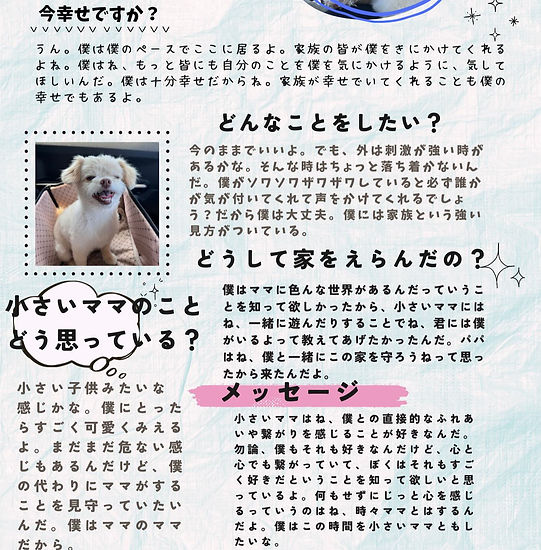 今幸せですか？
うん。僕は僕のペースでここに居るよ。家族の皆が僕をきにかけてくれる
よね。僕はね、もっと皆にも自分のことを僕を気にかけるように、気して
ほしいんだ。僕は十分幸せだからね。家族が幸せでいてくれることも僕の
幸せでもあるよ。
どんなことをしたい？
今のままでいいよ。でも、外は刺激が強い時が
あるかな。そんな時はちょっと落ち着かないん
だ。僕がソワソワザワザワしていると必ず誰か
が気が付いてくれて声をかけてくれるでしょ
う？だから僕は大丈夫。僕には家族という強い
見方がついている。
どうして家をえらんだの？
僕はママに色んな世界があるんだっていうこ
とを知って欲しかったから、小さいママには
ね、一緒に遊んだりすることでね、君には僕
がいるよって教えてあげたかったんだ。パパ
はね、僕と一緒にこの家を守ろうねって思っ
たから来たんだよ。
小さいママのこと
どう思っている？
小さい子供みたいな
感じかな。僕にとった
らすごく可愛くみえる
よ。まだまだ危ない感
じもあるんだけど、僕
の代わりにママがする
ことを見守っていたい
んだ。僕はママのママ
だから。
メッセージ
小さいママはね、僕との直接的なふれあ
いや繋がりを感じることが好きなんだ。
勿論、僕もそれも好きなんだけど、心と
心でも繋がっていて、ぼくはそれもすご
く好きだということを知って欲しいと思
っているよ。何もせずにじっと心を感じ
るっていうのはね、時々ママとはするん
だよ。僕はこの時間を小さいママともし
たいな。